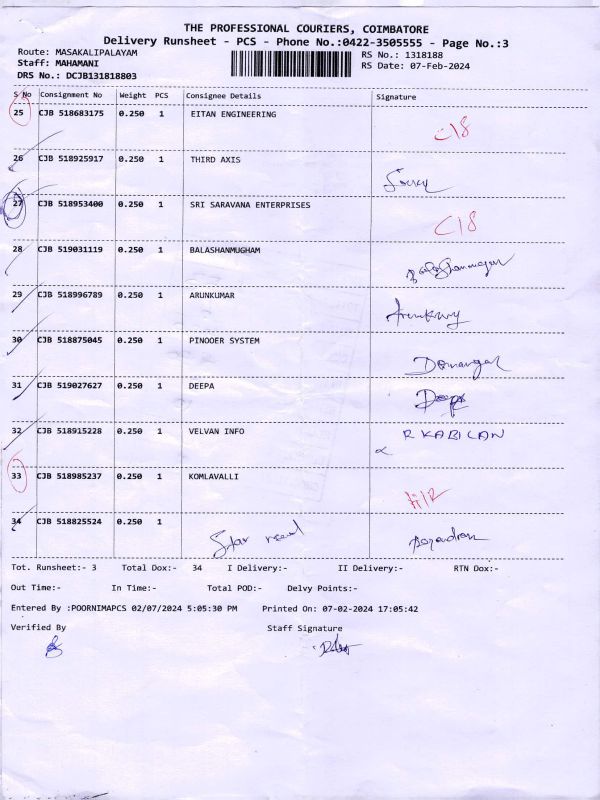 THE PROFESSIONAL COURIERS, COIMBATORE
Delivery Runsheet - PCS - Phone No.:0422-3505555 - Page No.:3
Route: MASAKALIPALAYAM RS No.: 1318188
Staff: MAHAMANI RS Date: 07-Feb-2024
DRS No.: DCJB131818803
S No Consignment No Weight PCS Consignee Details Signature
25 CJB 518683175 0.250 1 EITAN ENGINEERING
26 CJB 518925917 0.250 1 THIRD AXIS
27 CJB 518953400 0.250 1 SRI SARAVANA ENTERPRISES
28 CJB 519031119 0.250 1 BALASHANMUGHAM
29 CJB 518996789 0.250 1 ARUNKUMAR
30 CJB 518875045 0.250 1 PINOOER SYSTEM
31 CJB 519027627 0.250 1 DEEPA Deepa
32 CJB 518915228 0.250 1 VELVAN INFO R KABILAN
33 CJB 518985237 0.250 1 KOMLAVALLI
34 CJB 518825524 0.250 1 Star
Tot. Runsheet:- 3 Total Dox:- 34 I Delivery:- II Delivery:- RTN Dox:-
Out Time:- In Time:- Total POD:- Delvy Points:-
Entered By :POORNIMAPCS 02/07/2024 5:05:30 PM Printed On: 07-02-2024 17:05:42
Verified By Staff Signature